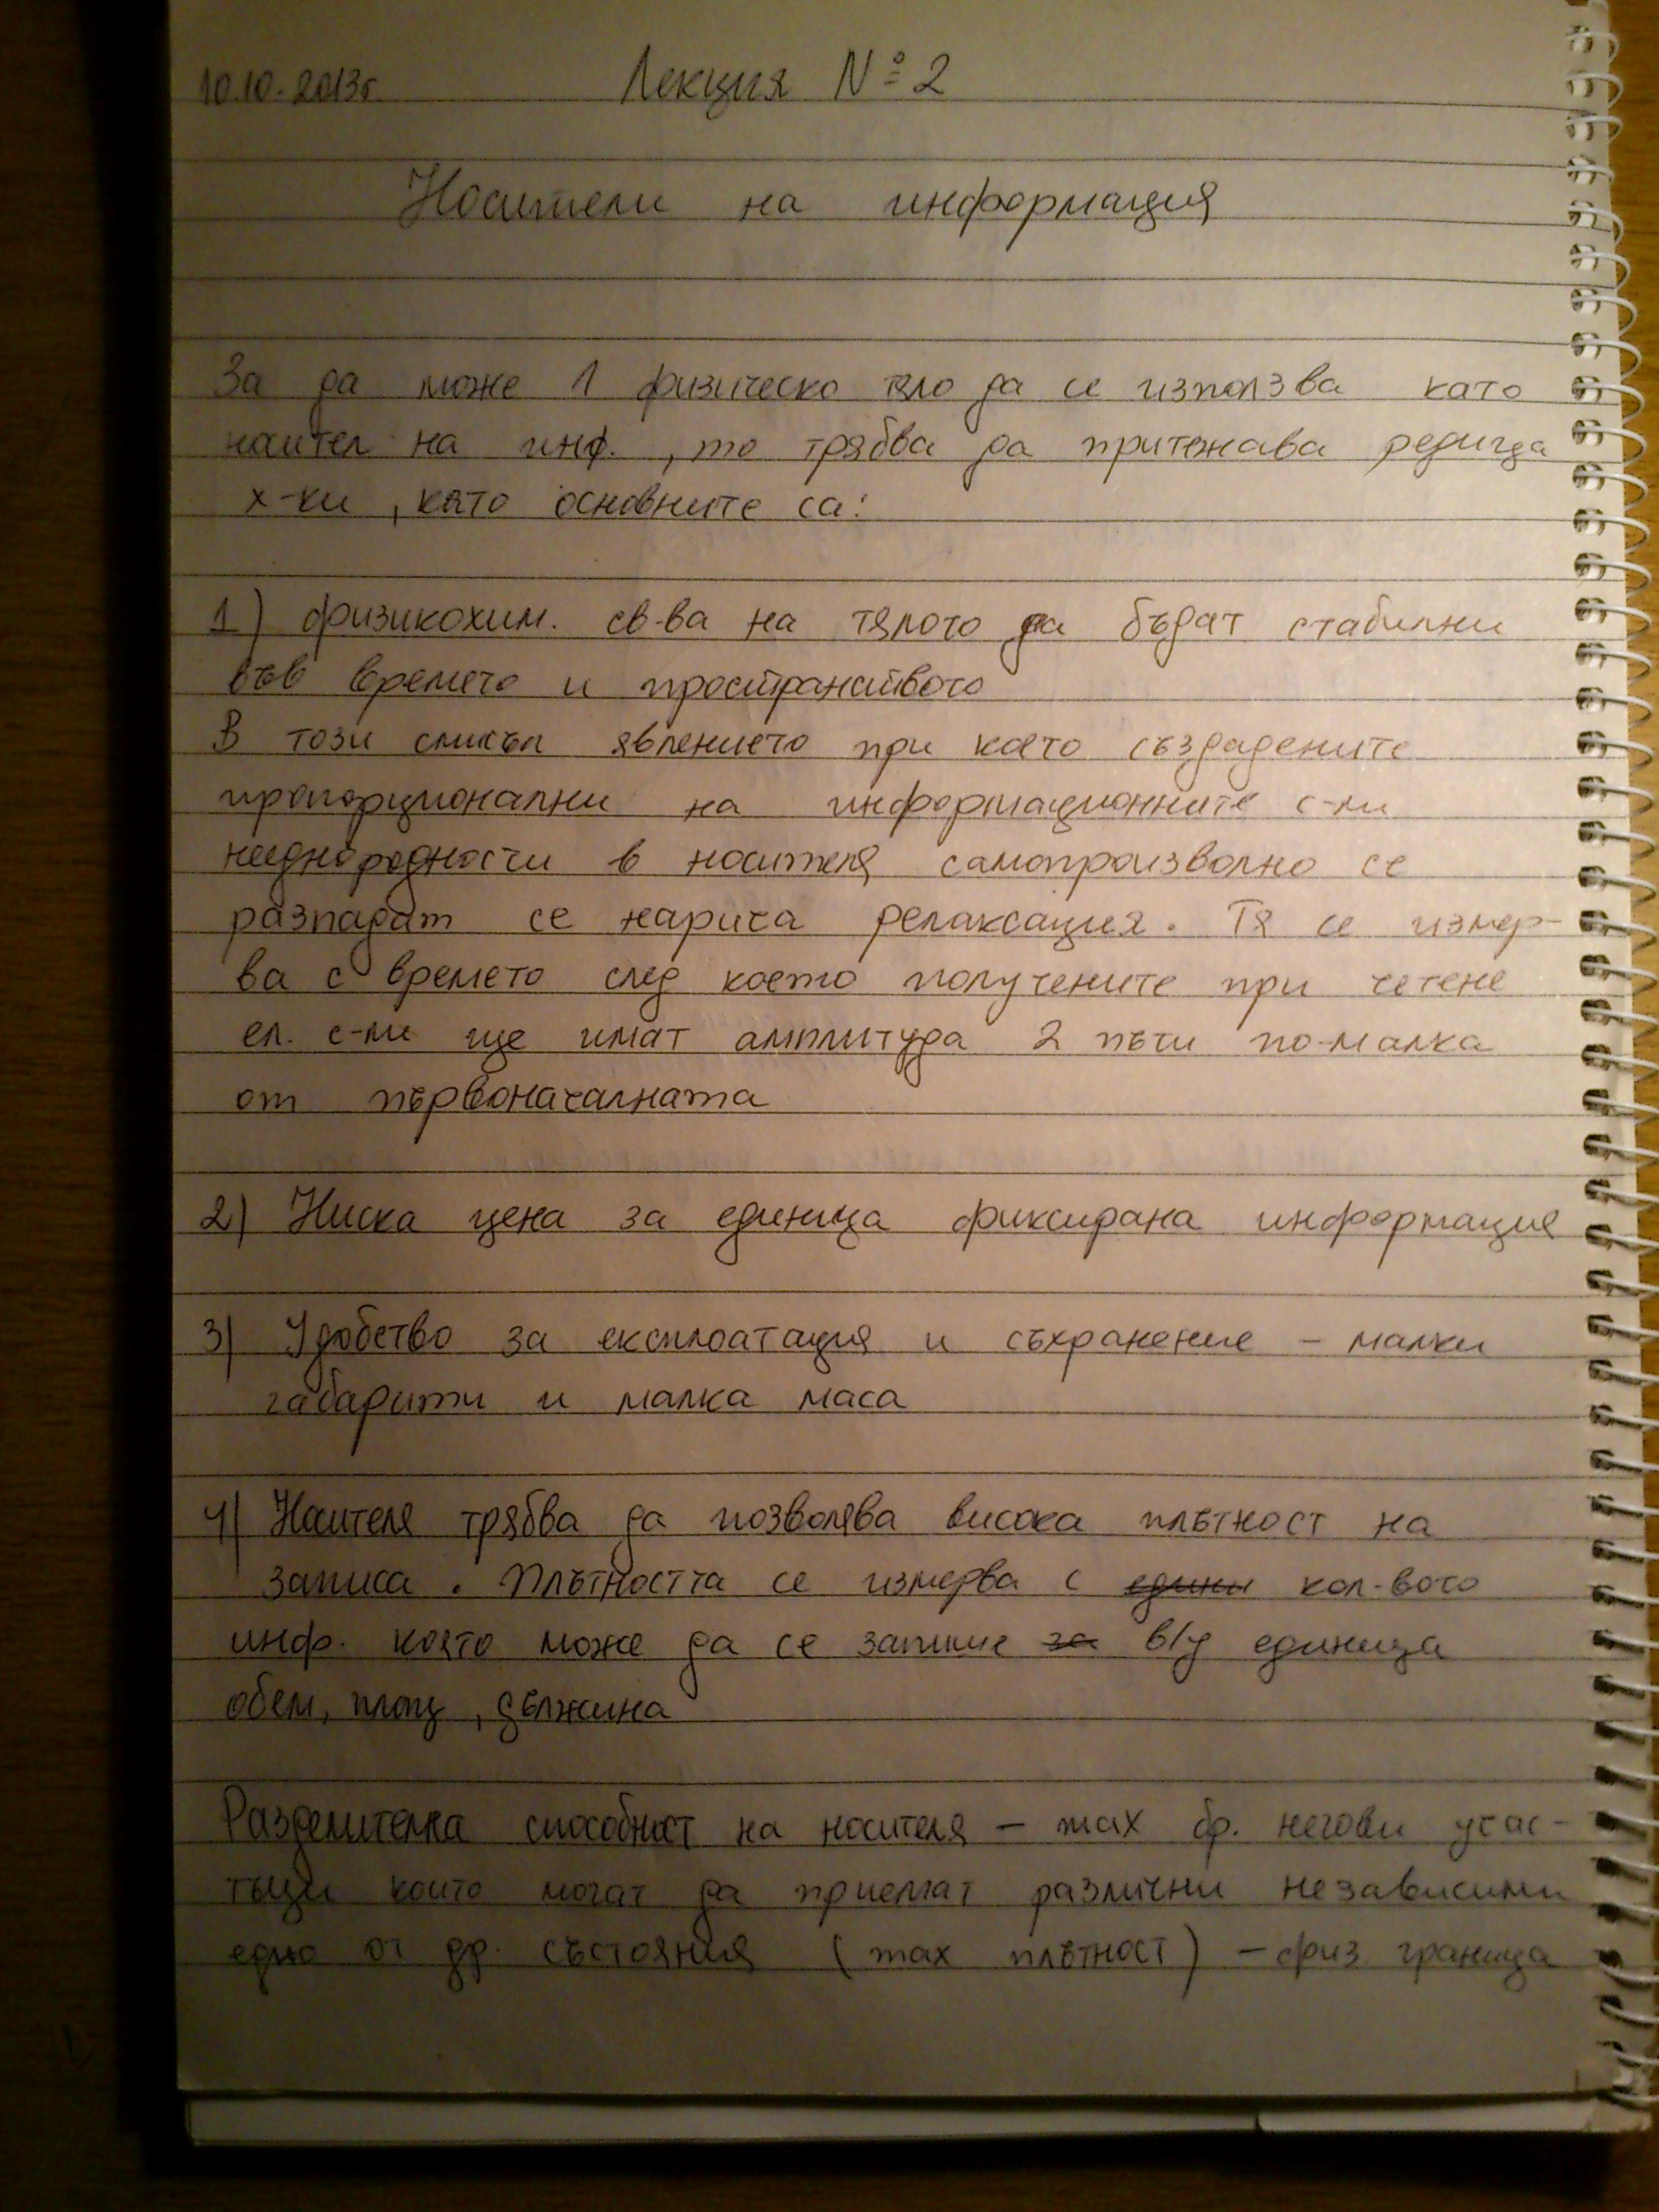 10.10.2013г. Лекция № 2
Носители на информация
За да може 1 физическо тяло да се използва като
носител на инф. , то трябва да притежава редица
х-ки , като основните са:
1) физикохим. св-ва на тялото да бъдат стабилни
във времето и пространството
В този смисъл явлението при което създадените
пропорционални на информационните с-ли
нееднородности в носителя самопроизволно се
разпадат се нарича релаксация. Тя се измер-
ва с времето след което получените при четене
ел. с-ли ще имат амплитуда 2 пъти по-малка
от първоначалната
2) Ниска цена за единица фиксирана информация
3) Удобство за експлоатация и съхранение - малки
габарити и малка маса
4) Носителя трябва да позволява висока плътност на
записа . Плътността се измерва с едини кол-вото
инф. която може да се запише за в/у единица
обем, площ, дължина
Разделителна способност на носителя - max бр. негови учас-
тъци които могат да приемат различни независими
едно от др. състояния (max плътност) - физ. граница